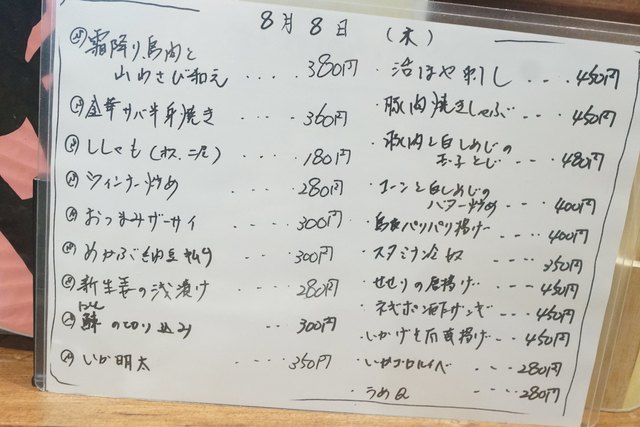 8月8日 (木)
小 霜降り鳥肉と
山わさび和え ････ 380円
小 金華サバ半身焼き ････ 360円
小 ししゃも(オス､二尾) ････ 180円
小 ウィンナー炒め ････ 280円
小 おつまみザーサイ ････ 300円
小 めかぶ納豆 ････ 300円
小 新生姜の浅漬け ････ 280円
小 鯡の切り込み ････ 300円
にしん
小 いか明太 ････ 350円
・活ほや刺し ････ 450円
・豚肉焼きしゃぶ ････ 450円
・豚肉と白しめじの
玉子とじ ････ 480円
・コーンと白しめじの
バター炒め ････ 400円
・鳥皮パリパリ揚げ ････ 400円
・スタミナ冷奴 ････ 350円
・せせりの唐揚げ ････ 450円
・ネギポン酢ザンギ ････ 450円
・いかげそ瓦頁揚げ ････ 450円
・いかゴロルイベ ････ 280円
・うめQ ････ 280円